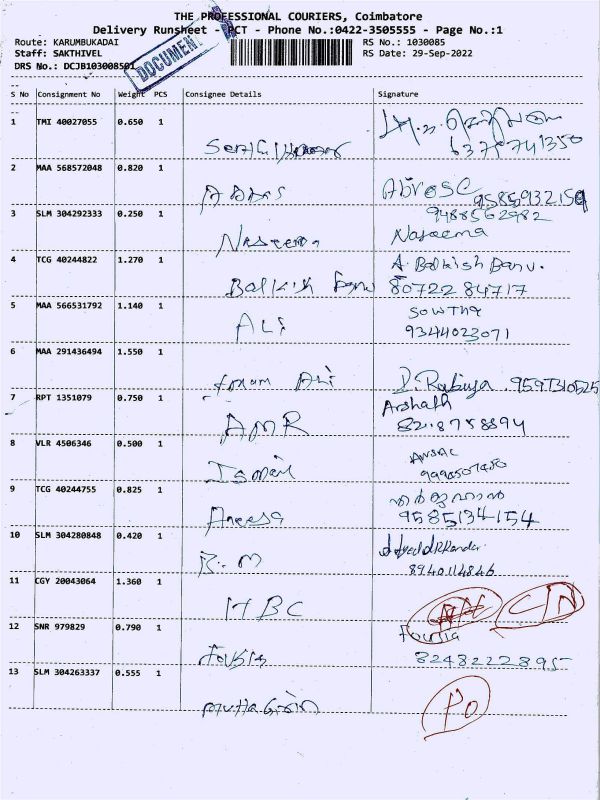 THE PROFESSIONAL COURIERS, Coimbatore
Delivery Runsheet - PCT - Phone No.:0422-3505555 - Page No.:1
Route: KARUMBUKADAI RS No.: 1030085
Staff: SAKTHIVEL RS Date: 29-Sep-2022
DRS No.: DCJB103008501
DOCUMENT
S No Consignment No Weight PCS Consignee Details Signature
1 TMI 40027055 0.650 1
2 MAA 568572048 0.820 1 ABBAS
9585932159
3 SLM 304292333 0.250 1 9488562982
Naseema Naseema
4 TCG 40244822 1.270 1 A. Balkish Banu.
Balkish Banu 80722 84717
5 MAA 566531792 1.140 1
ALI 9344023071
6 MAA 291436494 1.550 1
ALI
7 RPT 1351079 0.750 1 Arshath
AMR
8 VLR 4506346 0.500 1 ANSAC
Ismail
9 TCG 40244755 0.825 1
Aneesa 9585134154
10 SLM 304280848 0.420 1
B.M 8940114846
11 CGY 20043064 1.360 1
HBC CIN
12 SNR 979829 0.790 1 Fouzia
8248222895
13 SLM 304263337 0.555 1
PO